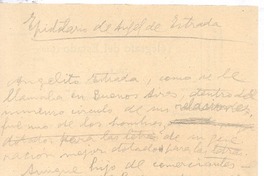 Epistolario de Angel de Estrada
Angelito Estrada, como se le
llamaba en Buenos Aires, dentro del
inmenso círculo de sus relaciones,
fué uno de los hombres
dotados para las letras de su gene
ración mejor dotados para las letras
Aunque hijo de comerciantes